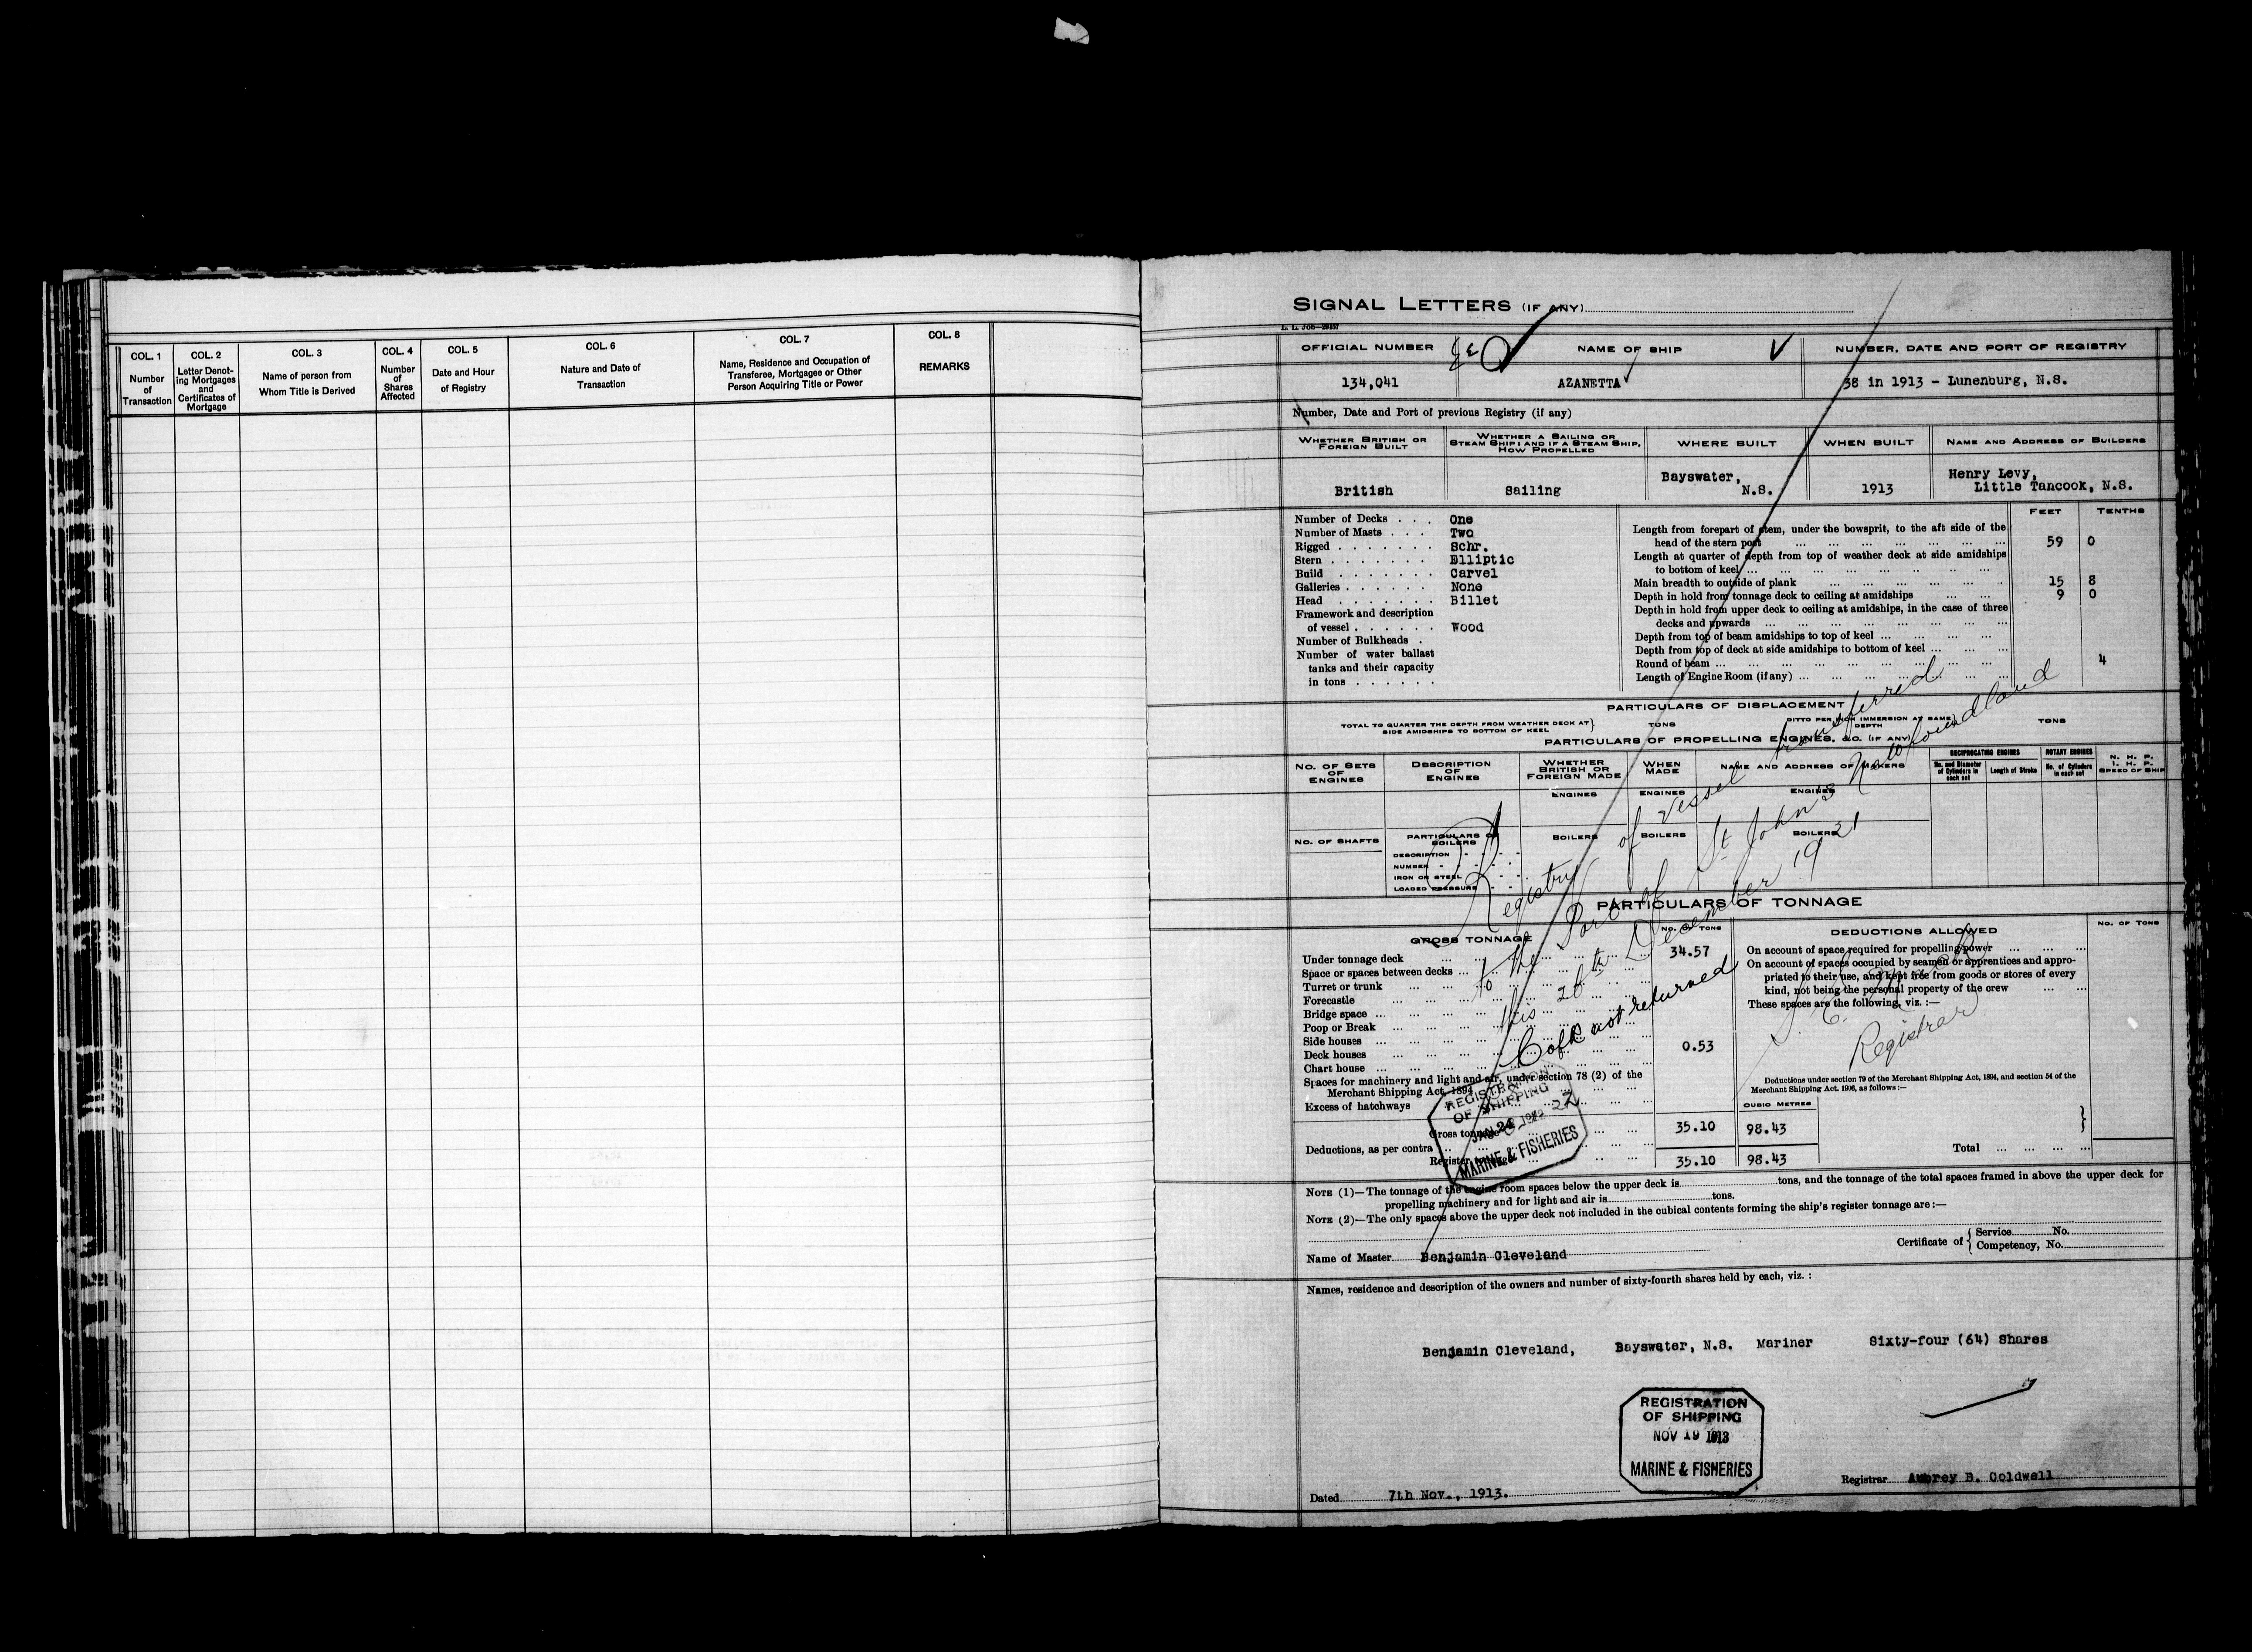 COL. 1
Number
of
Transaction
COL. 2
Letter Denot-
ing Mortgages
and
Certificates of
Mortgage
COL. 3
Name of person from
Whom Title is Derived
COL. 4
Number
of
Shares
Affected
COL. 5
Date and Hour
of Registry
COL. 6
Nature and Date of
Transaction
COL. 7
Name, Residence and Occupation of
Transferee, Mortgagee or Other
Person Acquiring Title or Power
COL. 8
REMARKS
SIGNAL LETTERS (IF ANY)
L. I. Job—29157
OFFICIAL NUMBER
NAME OF SHIP
NUMBER, DATE AND PORT OF REGISTRY
134,041
AZANETTA
38 in 1913 - Lunenburg, N.S.
Number, Date and Port of previous Registry (if any)
WHETHER BRITISH OR
FOREIGN BUILT
WHETHER A SAILING OR
STEAM SHIP: AND IF A STEAM SHIP,
HOW PROPELLED
WHERE BUILT
WHEN BUILT
NAME AND ADDRESS OF BUILDERS
British
Sailing
Bayswater,
N.S.
1913
Henry Levy,
Little Tancook, N.S.
Number of Decks . . . One
Number of Masts . . . Two
Rigged . . . . . . . Schr.
Stern . . . . . . . Elliptic
Build . . . . . . . Carvel
Galleries . . . . . . None
Head . . . . . . . Billet
Framework and description
of vessel . . . . . . Wood
Number of Bulkheads .
Number of water ballast
tanks and their capacity
in tons . . . . . .
FEET TENTHS
Length from forepart of stem, under the bowsprit, to the aft side of the
head of the stern post 59 0
Length at quarter of depth from top of weather deck at side amidships
to bottom of keel
Main breadth to outside of plank 15 8
Depth in hold from tonnage deck to ceiling at amidships 9 0
Depth in hold from upper deck to ceiling at amidships, in the case of three
decks and upwards
Depth from top of beam amidships to top of keel
Depth from top of deck at side amidships to bottom of keel
Round of beam 4
Length of Engine Room (if any)
PARTICULARS OF DISPLACEMENT
TOTAL TO QUARTER THE DEPTH FROM WEATHER DECK AT
SIDE AMIDSHIPS TO BOTTOM OF KEEL
TONS
DITTO PER INCH IMMERSION AT SAME
DEPTH
TONS
PARTICULARS OF PROPELLING ENGINES, &C. (IF ANY)
NO. OF SETS
OF
ENGINES
DESCRIPTION
OF
ENGINES
WHETHER
BRITISH OR
FOREIGN MADE
WHEN
MADE
NAME AND ADDRESS OF MAKERS
RECIPROCATING ENGINES
No. and Diameter
of Cylinders in
each set
Length of Stroke
ROTARY ENGINES
No. of Cylinders
in each set
N. H. P.
I. H. P.
SPEED OF SHIP
ENGINES
ENGINES
ENGINES
NO. OF SHAFTS
PARTICULARS OF
BOILERS
DESCRIPTION
NUMBER
IRON OR STEEL
LOADED PRESSURE
BOILERS
BOILERS
BOILERS
Registry of vessel transferred
to the Port of St John's Newfoundland
this 26th December 1921
C of R not returned
Registrar
PARTICULARS OF TONNAGE
GROSS TONNAGE
NO. OF TONS
Under tonnage deck 34.57
Space or spaces between decks
Turret or trunk
Forecastle
Bridge space
Poop or Break
Side houses
Deck houses 0.53
Chart house
Spaces for machinery and light and air, under section 78 (2) of the
Merchant Shipping Act, 1894
Excess of hatchways
Gross tonnage 35.10 98.43
Deductions, as per contra
Register tonnage 35.10 98.43
CUBIC METRES
DEDUCTIONS ALLOWED
NO. OF TONS
On account of space required for propelling power
On account of spaces occupied by seamen or apprentices and appro-
priated to their use, and kept free from goods or stores of every
kind, not being the personal property of the crew
These spaces are the following, viz. :—
Deductions under section 79 of the Merchant Shipping Act, 1894, and section 54 of the
Merchant Shipping Act, 1906, as follows :—
Total
REGISTRATION
OF SHIPPING
MARINE & FISHERIES
NOTE (1)—The tonnage of the engine room spaces below the upper deck is tons, and the tonnage of the total spaces framed in above the upper deck for
propelling machinery and for light and air is tons.
NOTE (2)—The only spaces above the upper deck not included in the cubical contents forming the ship's register tonnage are :—
Name of Master Benjamin Cleveland
Certificate of { Service No.
Competency, No.
Names, residence and description of the owners and number of sixty-fourth shares held by each, viz. :
Benjamin Cleveland, Bayswater, N.S. Mariner Sixty-four (64) Shares
REGISTRATION
OF SHIPPING
NOV 19 1913
MARINE & FISHERIES
Dated 7th Nov., 1913.
Registrar Aubrey B. Coldwell